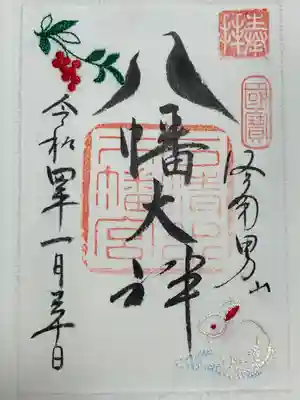 奉拝
國寶
洛南男山
八幡大神
石清水八幡宮
令和四年一月十日